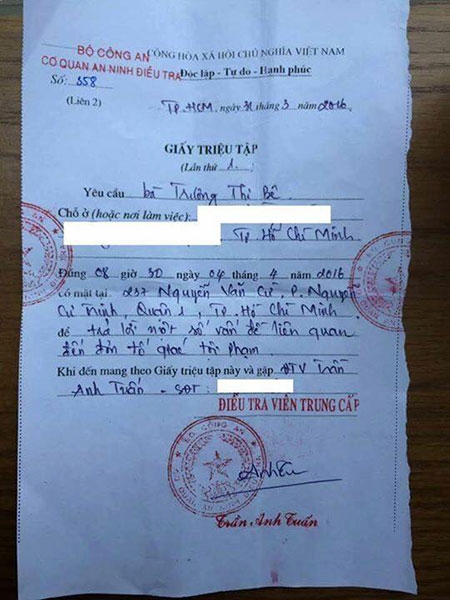 BỘ CÔNG AN
CƠ QUAN AN NINH ĐIỀU TRA
CỘNG HÒA XÃ HỘI CHỦ NGHĨA VIỆT NAM
Độc lập - Tự do - Hạnh phúc
Số: 558
(Liên 2)
TP. HCM, ngày 31 tháng 3 năm 2016
GIẤY TRIỆU TẬP
(Lần thứ 1.)
Yêu cầu bà Trương Thị Bê
Chỗ ở (hoặc nơi làm việc):
Tp Hồ Chí Minh
Đúng 08 giờ 30 ngày 04 tháng 4 năm 2016
có mặt tại 237 Nguyễn Văn Cừ, P. Nguyễn
Cư Trinh, Quận 1, Tp. Hồ Chí Minh
để trả lời một số vấn đề liên quan
đến đơn tố giác tội phạm.
Khi đến mang theo Giấy triệu tập này và gặp ĐTV Trần
Anh Tuấn - SĐT:
ĐIỀU TRA VIÊN TRUNG CẤP
BỘ CÔNG AN
Trần Anh Tuấn